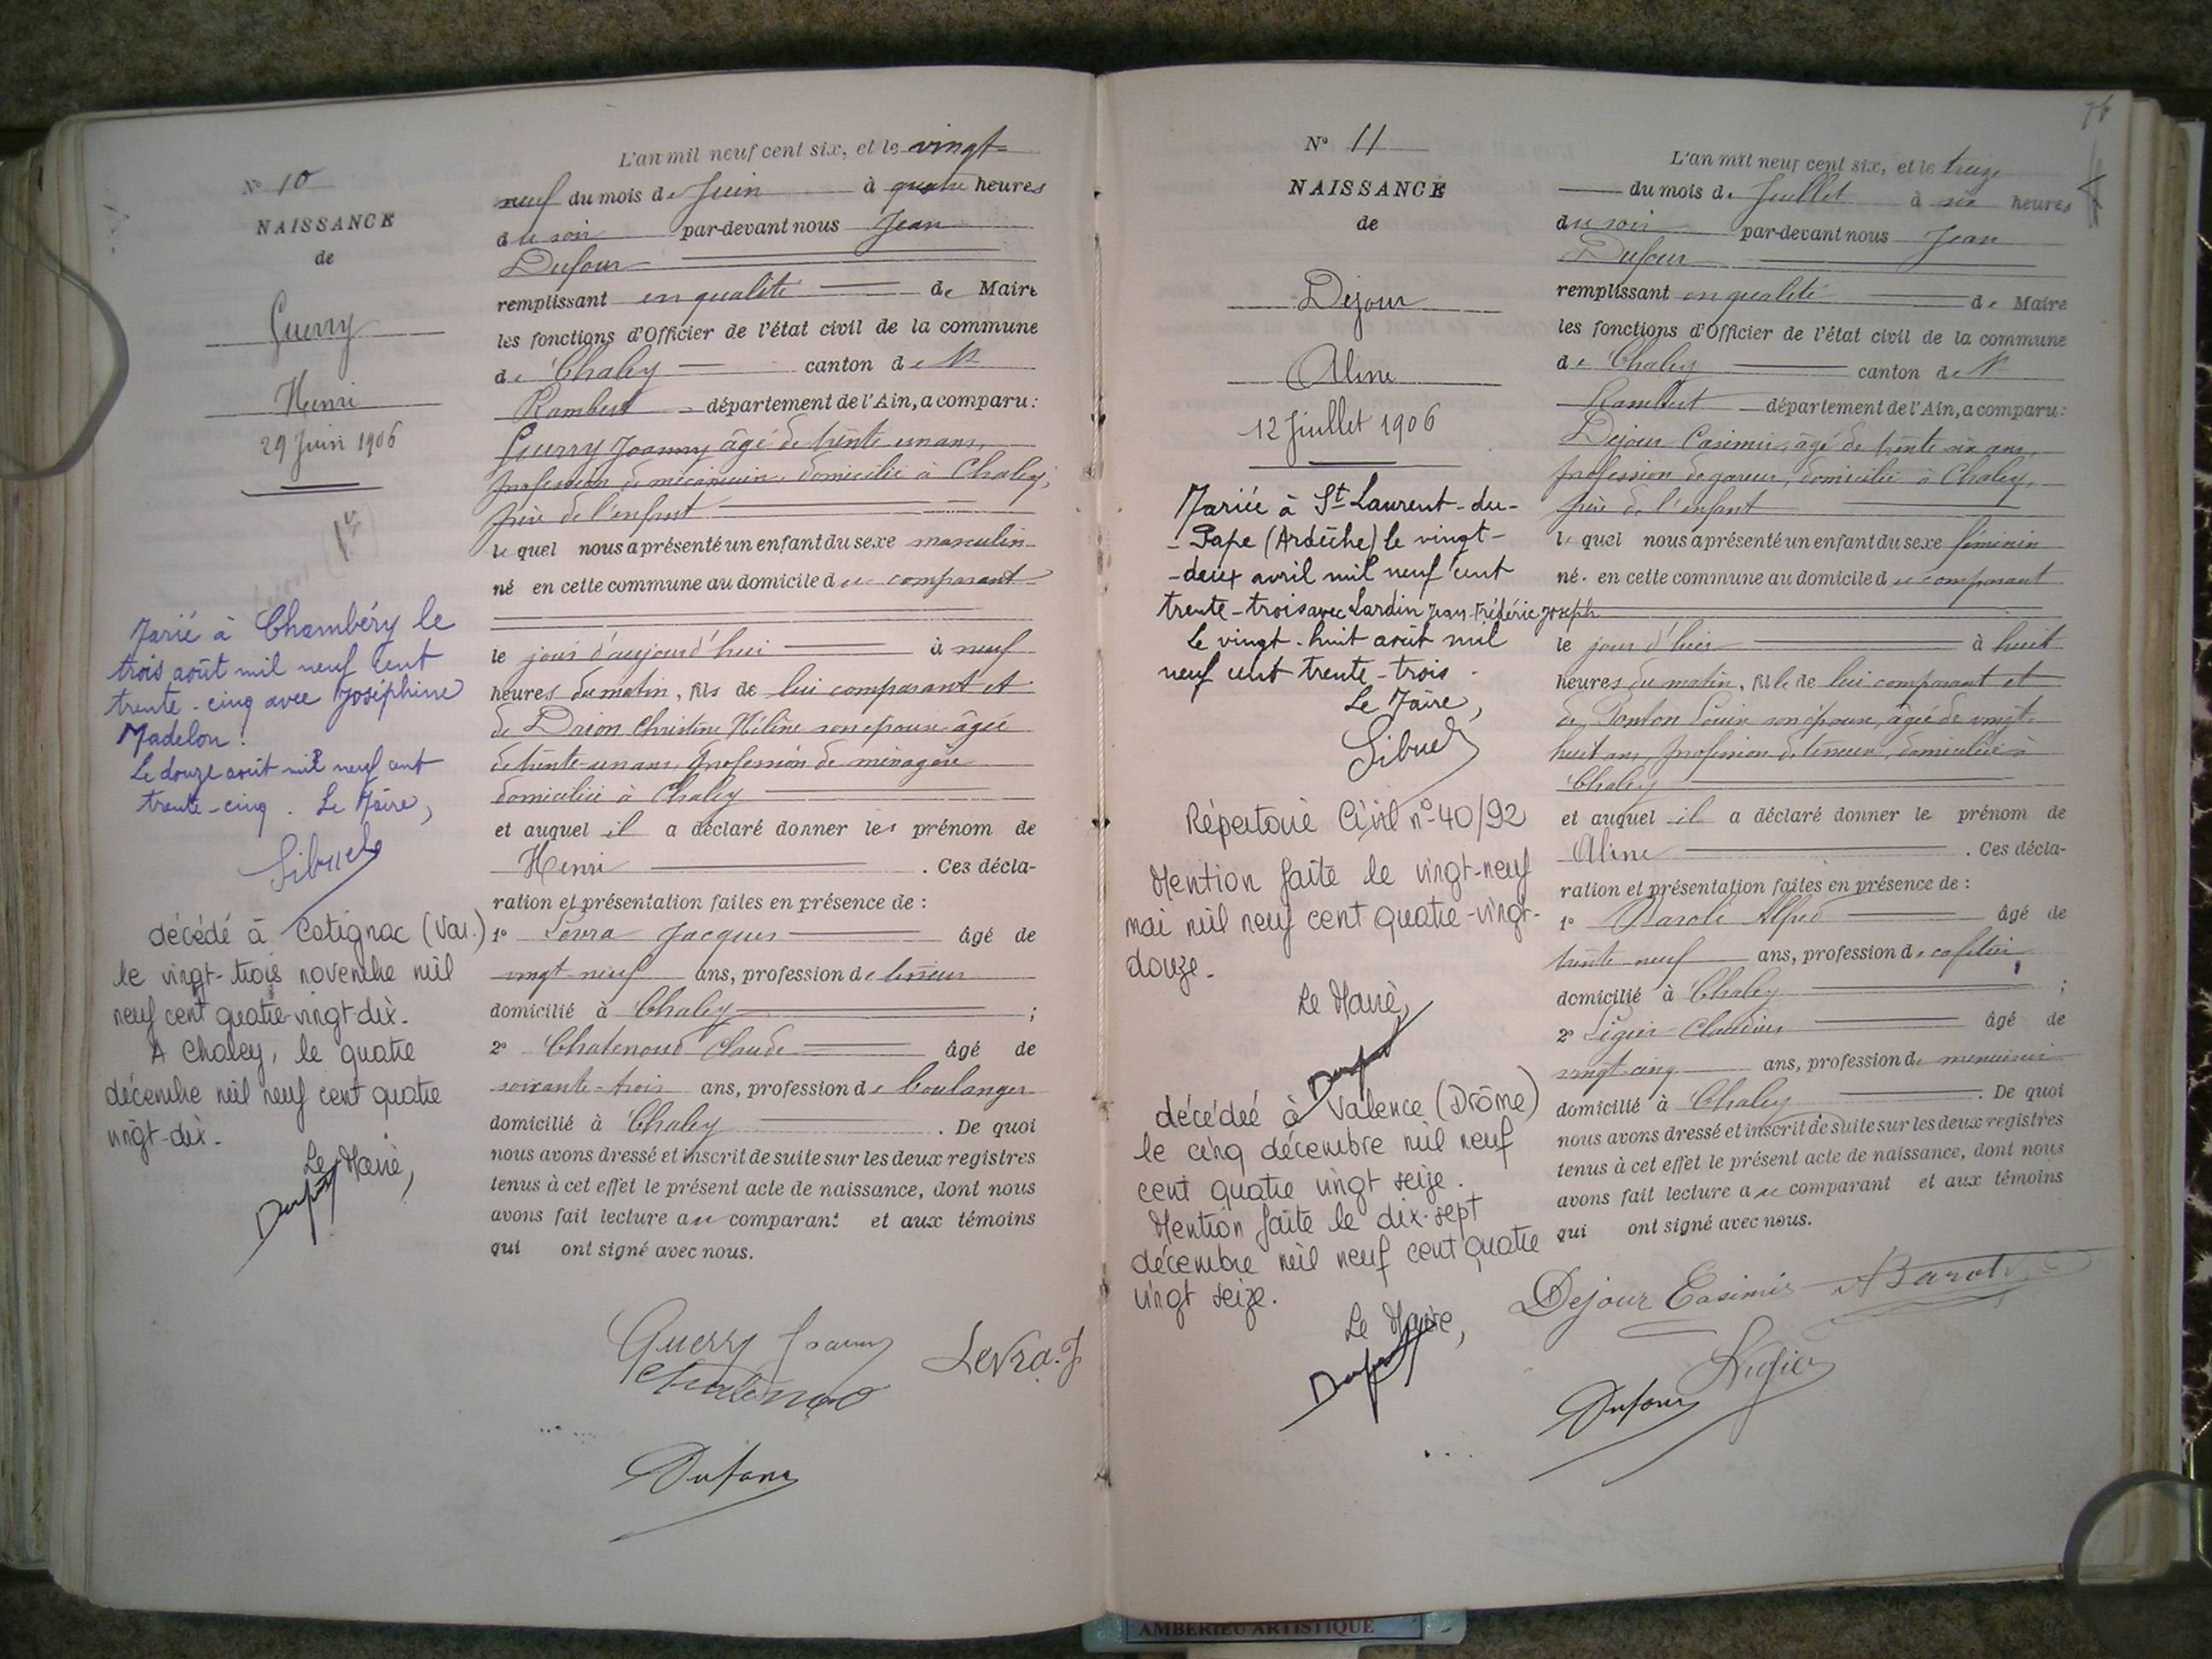 N° 10
NAISSANCE
de
Guerry
Henri
29 Juin 1906
Marié à Chambéry le
trois août mil neuf cent
trente-cinq avec Joséphine
Madelon.
Le douze août mil neuf cent
trente-cinq. Le Maire,
Sibuet
décédé à Cotignac (Var.)
le vingt-trois novembre mil
neuf cent quatre-vingt-dix.
A Chaley, le quatre
décembre mil neuf cent quatre
vingt-dix.
Le Maire,
L'an mil neuf cent six, et le vingt-
neuf du mois de Juin à quatre heures
du soir par-devant nous Jean
Dufour
remplissant en qualité de Maire
les fonctions d'Officier de l'état civil de la commune
de Chaley canton de St
Rambert département de l'Ain, a comparu:
Guerry Joanny âgé de trente un ans,
profession de mécanicien, domicilié à Chaley,
père de l'enfant
le quel nous a présenté un enfant du sexe masculin
né en cette commune au domicile du comparant
le jour d'aujourd'hui à neuf
heures du matin, fils de lui comparant et
de Christine Hélène son épouse âgée
de trente-un ans, profession de ménagère
domiciliée à Chaley
et auquel il a déclaré donner les prénom de
Henri . Ces décla-
ration et présentation faites en présence de :
1° Levra Jacques âgé de
vingt-neuf ans, profession de tisseur
domicilié à Chaley ;
2° Chatenoud Claude âgé de
soixante-trois ans, profession de boulanger
domicilié à Chaley . De quoi
nous avons dressé et inscrit de suite sur les deux registres
tenus à cet effet le présent acte de naissance, dont nous
avons fait lecture au comparant et aux témoins
qui ont signé avec nous.
Guerry Joanny
Levra. J
Dufour
N° 11
NAISSANCE
de
Dejour
Aline
12 Juillet 1906
Mariée à St Laurent-du-
-Pape (Ardèche) le vingt-
-deux avril mil neuf cent
trente-trois avec Lardin Jean Frédéric Joseph
Le vingt-huit août mil
neuf cent trente-trois.
Le Maire,
Sibuet
Répertoire Civil n° 40/92
Mention faite le vingt-neuf
mai mil neuf cent quatre-vingt-
douze.
Le Maire,
décédée à Valence (Drôme)
le cinq décembre mil neuf
cent quatre vingt seize.
Mention faite le dix-sept
décembre mil neuf cent quatre
vingt seize.
Le Maire,
L'an mil neuf cent six, et le treize
du mois de Juillet à six heures
du soir par-devant nous Jean
Dufour
remplissant en qualité de Maire
les fonctions d'Officier de l'état civil de la commune
de Chaley canton de St
Rambert département de l'Ain, a comparu:
Dejour Casimir, âgé de trente six ans,
profession de gareur, domicilié à Chaley,
père de l'enfant
le quel nous a présenté un enfant du sexe féminin
né. en cette commune au domicile du comparant
le jour d'hier à huit
heures du matin, fille de lui comparant et
de Ponton Louise son épouse, âgée de vingt-
huit ans, profession de tisseuse, domiciliée à
Chaley
et auquel il a déclaré donner le prénom de
Aline . Ces décla-
ration et présentation faites en présence de :
1° Alfred âgé de
trente neuf ans, profession de cafetier
domicilié à Chaley ;
2° Ligier Claudius âgé de
vingt cinq ans, profession de menuisier
domicilié à Chaley . De quoi
nous avons dressé et inscrit de suite sur les deux registres
tenus à cet effet le présent acte de naissance, dont nous
avons fait lecture au comparant et aux témoins
qui ont signé avec nous.
Dejour Casimir
Dufour
AMBERIEU ARTISTIQUE